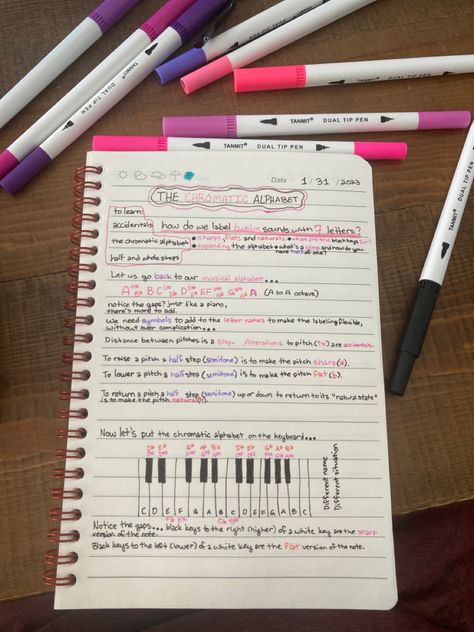 TANMIT DUAL TIP PEN
TANMIT DUAL TIP PEN
TANMIT DUAL TIP PEN
TANMIT DUAL TIP PEN
Date 1/31/2023
THE CHROMATIC ALPHABET
to learn:
accidentals
the chromatic alphabet
half and whole steps
how do we label twelve sounds with 7 letters?
• sharps, flats and naturals • what are the black keys for?
• expanding the alphabet • what's a step and how do you have half of one?
Let us go back to our musical alphabet...
A B C D E F G A (A to A octave)
notice the gaps? just like a piano,
there's more to add.
We need symbols to add to the letter names to make the labeling flexible,
without over complication...
Distance between pitches is a step. Alterations to pitch(es) are accidentals.
To raise a pitch a half step (semitone) is to make the pitch sharp(#).
To lower a pitch a half step (semitone) is to make the pitch flat (b).
To return a pitch a half step (semitone) up or down to return to its "natural state"
is to make the pitch natural(♮).
Now let's put the chromatic alphabet on the keyboard...
Db Eb Gb Ab Bb Db Eb Gb Ab Bb
C D E F G A B C D E F G A B C
Different name
Different situation
Notice the gaps... black keys to the right (higher) of a white key are the sharp
version of the note.
Black keys to the left (lower) of a white key are the flat version of the note.